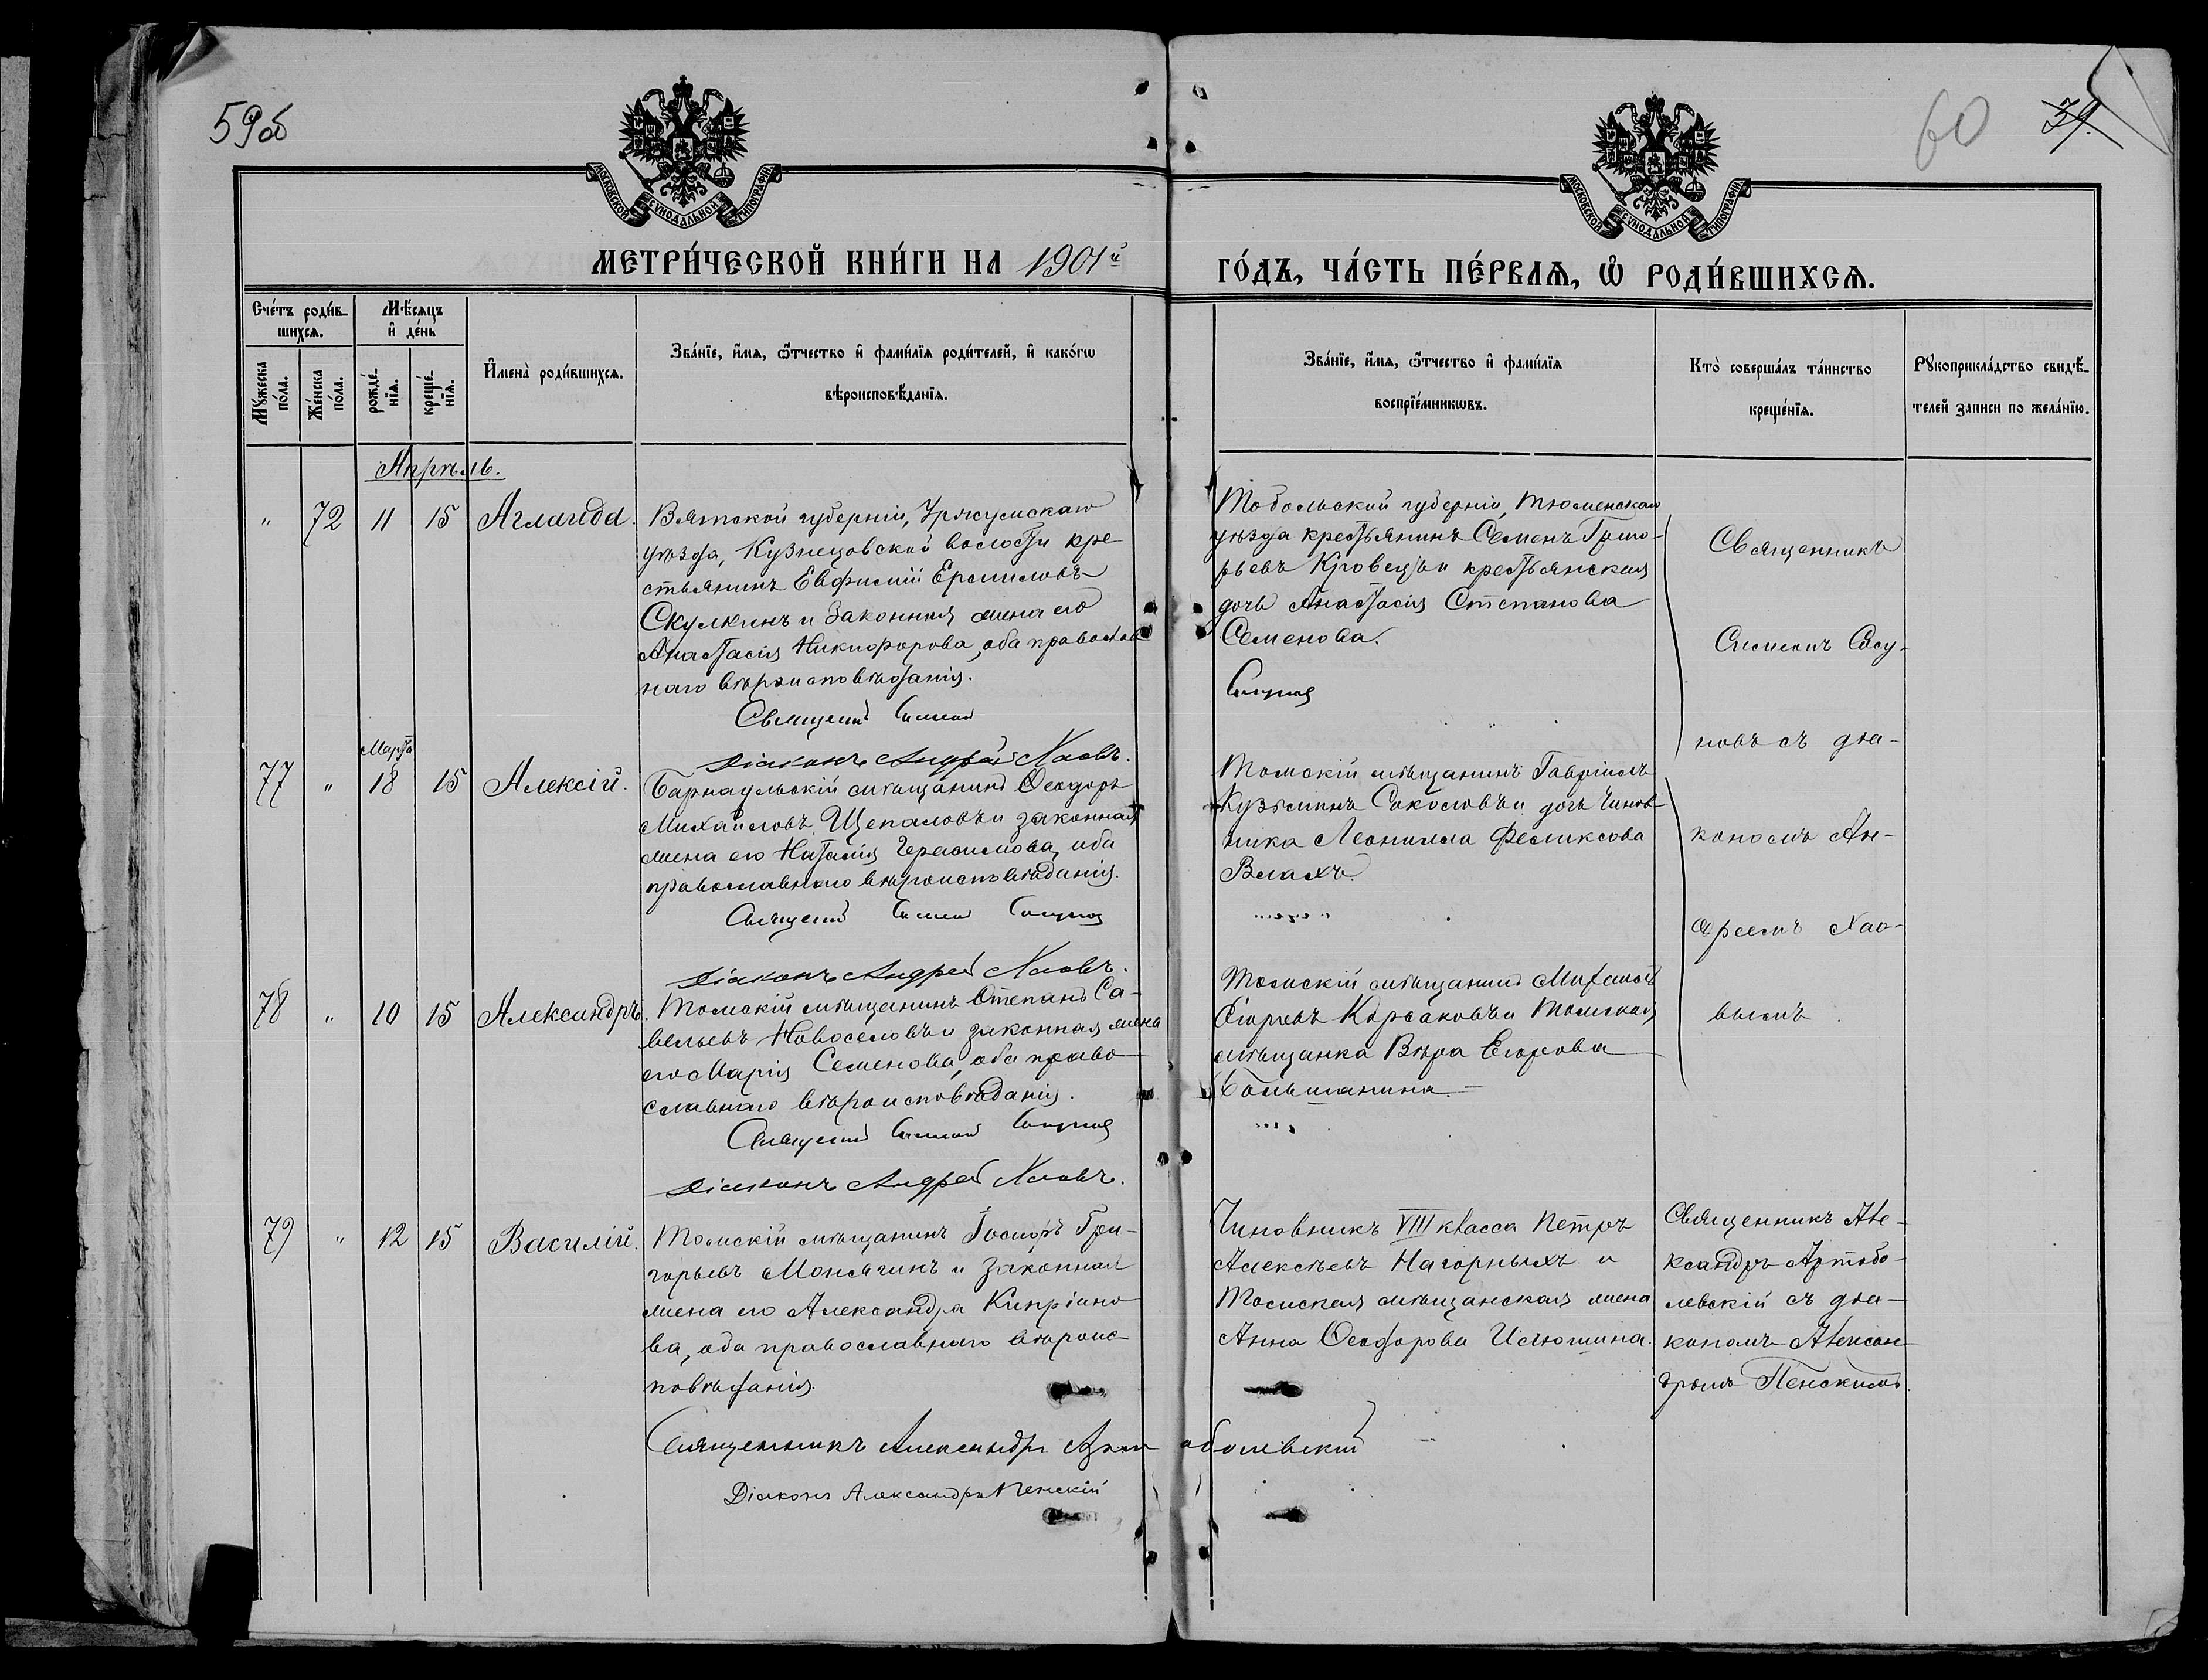 59об
60
31.
МОСКОВСКОЙ СѴНОДАЛЬНОЙ ТИПОГРАФІИ
МОСКОВСКОЙ СѴНОДАЛЬНОЙ ТИПОГРАФІИ
МЕТРИ́ЧЕСКОЙ КНИ́ГИ НА 1901й
ГО́ДЪ, ЧА́СТЬ ПЕ́РВАѦ, Ѡ҆ РОДИ́ВШИХСѦ.
Сче́тъ роди́в-
шихсѧ.
Мѣ́сѧцъ
и҆ де́нь
Мꙋ́жеска
по́ла.
Же́нска
по́ла.
рожде́-
нїѧ.
креще́-
нїѧ.
И҆мена̀ роди́вшихсѧ.
Зва́нїе, и҆́мѧ, ѻ҆́тчество и҆ фами́лїѧ роди́телей, и҆ како́гѡ
вѣроисповѣ́данїѧ.
Зва́нїе, и҆́мѧ, ѻ҆́тчество и҆ фами́лїѧ
воспрїе́мникѡвъ.
Кто̀ соверша́лъ та́инство
креще́нїѧ.
Рꙋкоприкла́дство свидѣ́-
телей записи по жела́нїю.
Апрѣль.
" 72 11 15 Аглаида.
Вятской губерніи, Уржумскаго
уѣзда, Кузнецовской волости кре-
стьянинъ Евфимій Ермиловъ
Скулкинъ и законная жена его
Анастасія Никифорова, оба православ
наго вѣроисповѣданія.
Священ Симеон
Діаконъ Андрей Хаовъ.
Тобольской губерніи, Тюменскаго
уѣзда крестьянинъ Семенъ Григо-
рьевъ Кровецъ и крестьянская
дочь Анастасія Степанова
Семенова.
Сосунов
Священникъ
Симеонъ Сосу-
новъ съ діа-
кономъ Ан-
дреемъ Хао-
вымъ
Марта
77 " 18 15 Алексій.
Барнаульскій мѣщанинъ Ѳеодоръ
Михайловъ Щепаловъ и законная
жена его Наталія Герасимова, оба
православнаго вѣроисповѣданія.
Священ Симеон Сосунов
Діаконъ Андрей Хаовъ.
Томскій мѣщанинъ Гавріилъ
Кузьминъ Соколовъ и дочь чинов
ника Леонилла Феликсова
Влахъ.
78 " 10 15 Александръ.
Томскій мѣщанинъ Степанъ Са-
вельевъ Новоселовъ и законная жена
его Марія Семенова, оба право-
славнаго вѣроисповѣданія.
Священ Симеон Сосунов
Діаконъ Андрей Хаовъ.
Томскій мѣщанинъ Михаилъ
Егоревъ Корсаковъ и Томская
мѣщанка Вѣра Егорова
Большанина.
79 " 12 15 Василій.
Томскій мѣщанинъ Іосифъ Гри-
горьевъ Монягинъ и законная
жена его Александра Кипріано-
ва, оба православнаго вѣроис-
повѣданія.
Чиновникъ VIII класса Петръ
Алексѣевъ Нагорныхъ и
Томская мѣщанская жена
Анна Ѳеодорова
Священникъ Але-
ксандръ Артобо-
левскій съ діа-
кономъ Алексан
дромъ Пенскимъ.
Священникъ Александръ Артоболевскій
Діаконъ Александръ Пенскій